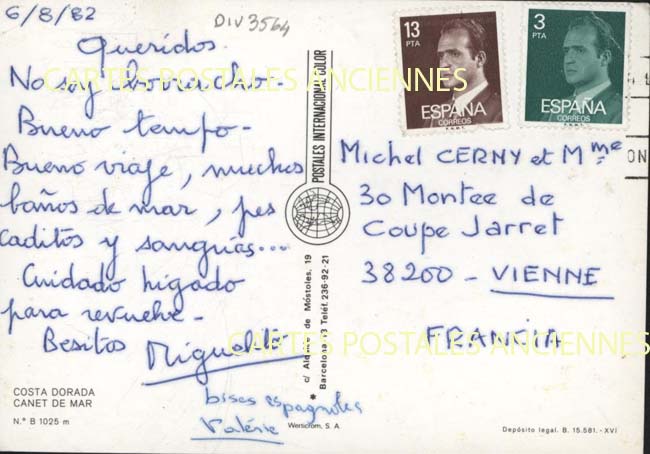 6/8/82
DIV3564
Queridos
No soy borracho-
Bueno tempo-
Bueno viaje, muchos
baños de mar, pes
caditos y sangrias...
Cuidado higado
para revuelve-
Besitos Miguelit
bises espagnoles
Valérie
COSTA DORADA
CANET DE MAR
N.º B 1025 m
POSTALES INTERNACIONAL COLOR
c/ de Móstoles, 19
Barcelona Teléf. 236-92-21
Wersicrom, S. A.
13
PTA
ESPAÑA
CORREOS
3
PTA
ESPAÑA
CORREOS
ON
Michel CERNY et Mme
30 Montee de
Coupe Jarret
38200 - VIENNE
FRANCIA
Depósito legal. B. 15.581. - XVI
CARTES POSTALES ANCIENNES
CARTES POSTALES ANCIENNES